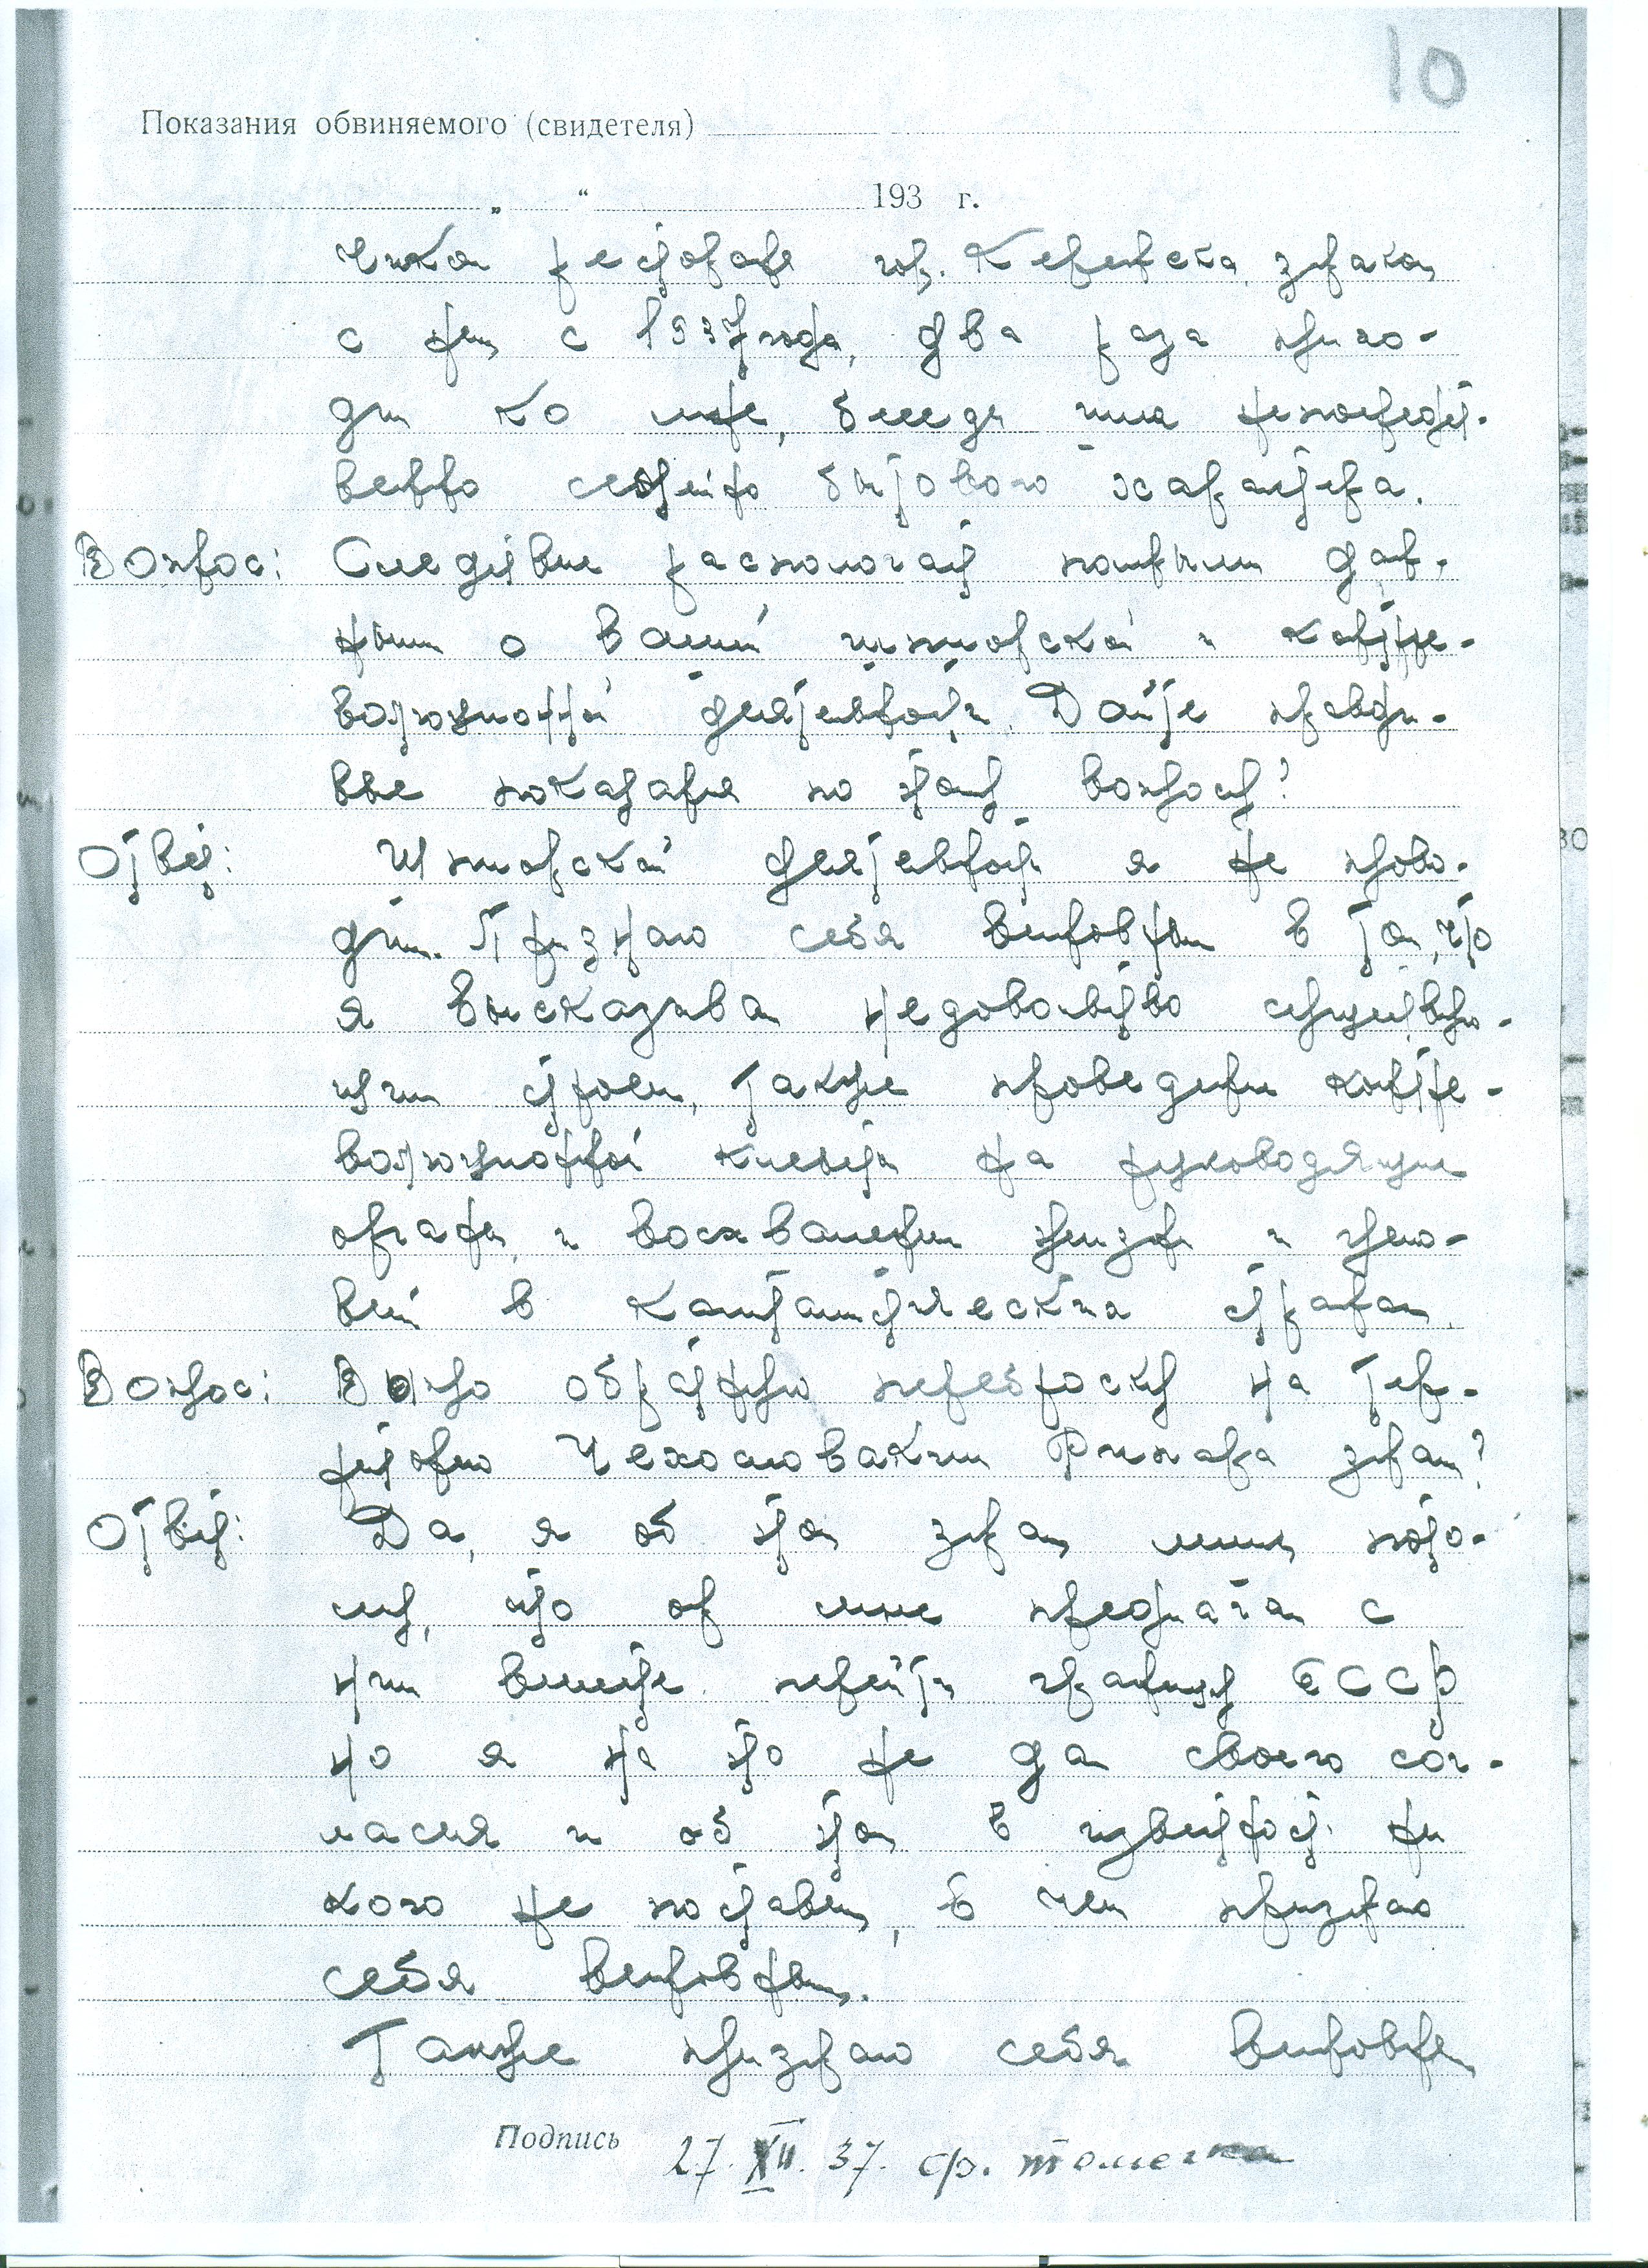 10
Показания обвиняемого (свидетеля)
„ “ 193 г.
чиком ресторана гор. Керенска, знаком
с ним с 1937 года, два раза прихо-
дил ко мне, беседы шли непосредст-
венно семейно бытового характера.
Вопрос: Следствие располагает полными дан-
ными о Вашей шпионской и контре-
волюционной деятельности. Дайте правди-
вые показания по этому вопросу?
Ответ: Шпионской деятельностью я не прово-
дил. Признаю себя виновным в том, что
я высказывал недовольство существую-
щим строем, также проведении контре-
волюционной клеветы на руководящие
органы, и восхвалении жизни и усло-
вий в капиталистических странах.
Вопрос: Вы про обратную переброску на тер-
риторию Чехословакии Рихтара знали?
Ответ: Да, я об этом знал, лишь пото-
му, что он мне предлагал с
ним вместе перейти границу СССР
но я на это не дал своего сог-
ласия и об этом в известность ни
кого не поставил, в чем признаю
себя виновным.
Также признаю себя виновным
Подпись 27. XII. 37. ф. томечка